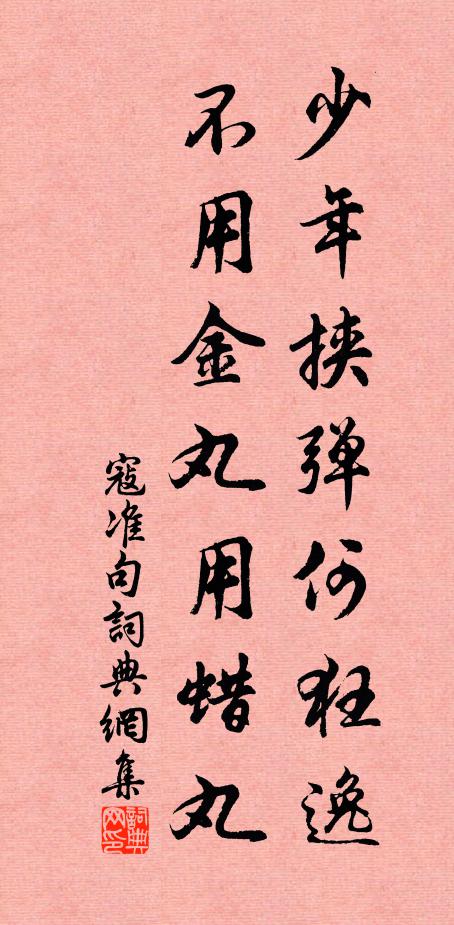 少年挟弹何狂逸
不用金丸用蜡丸
寇准句詞典網集
詞典网印